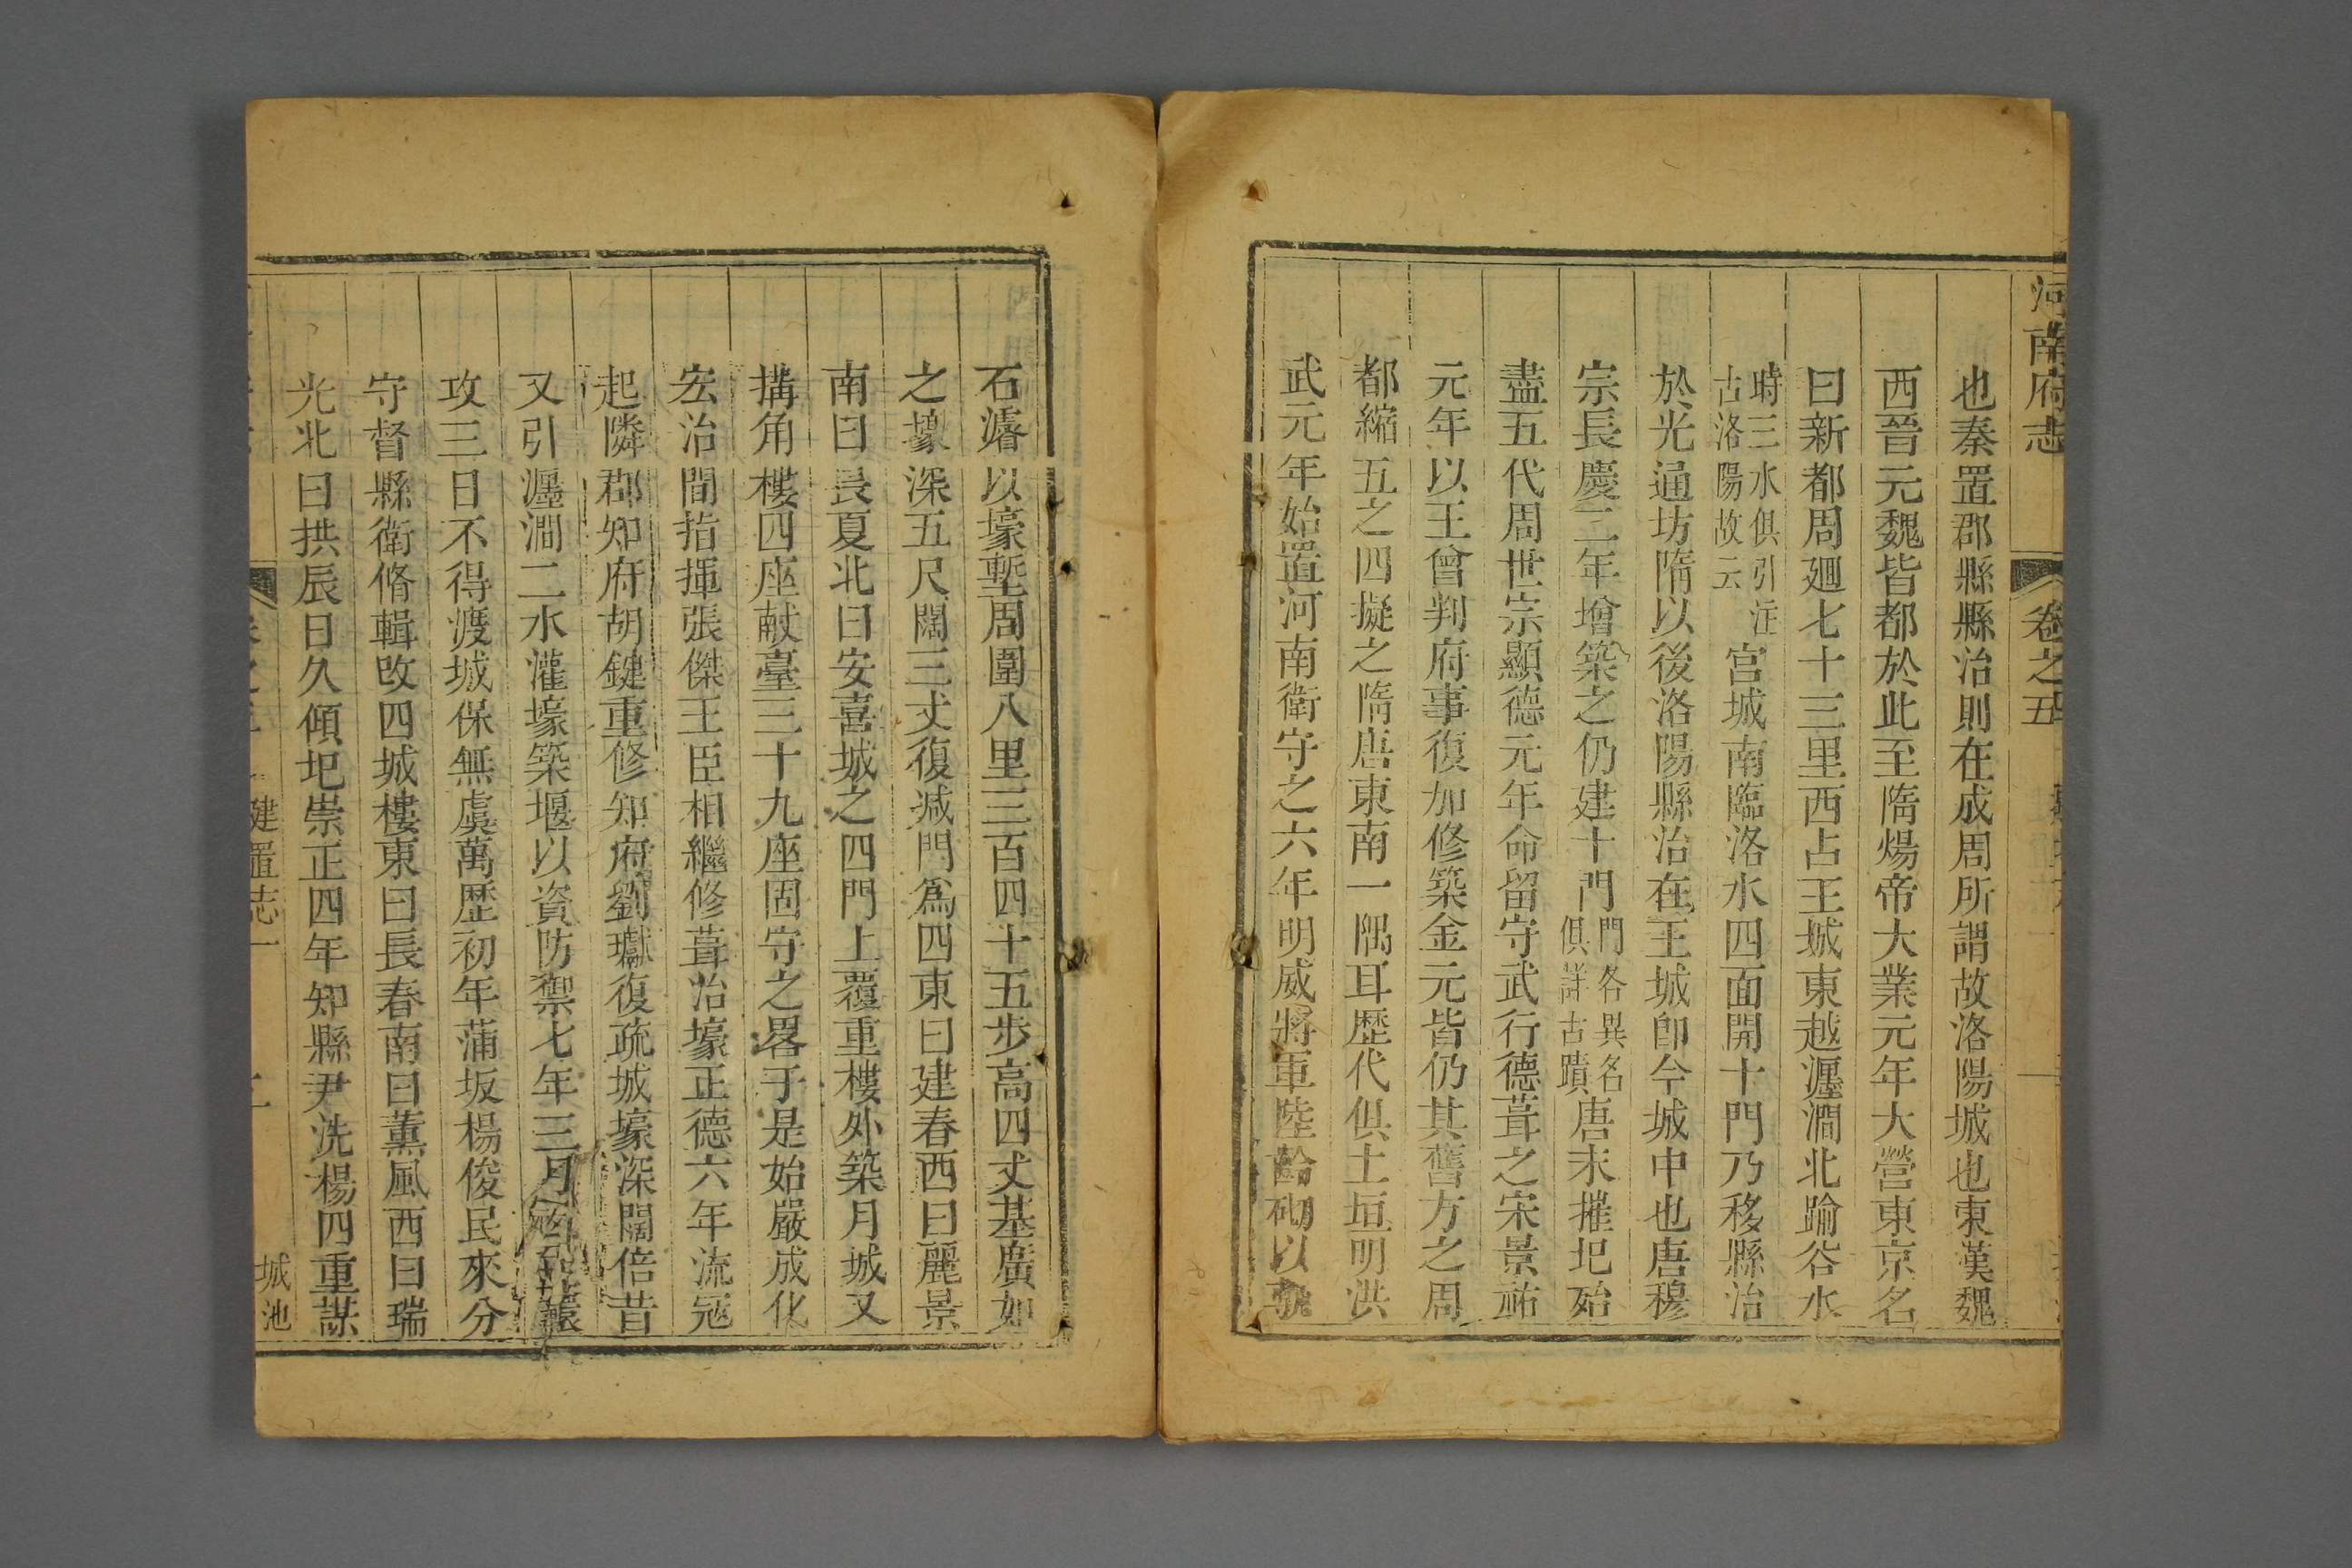 河南府志
卷之五
也秦置郡縣縣治則在成周所謂故洛陽城也東漢魏
西晉元魏皆都於此至隋煬帝大業元年大營東京名
曰新都周廻七十三里西占王城東越瀍澗北踰谷水
時三水俱引注
古洛陽故云
宮城南臨洛水四面開十門乃移縣治
於光通坊隋以後洛陽縣治在王城卽今城中也唐穆
宗長慶二年增築之仍建十門
門各異名
俱詳古蹟
唐末摧圮殆
盡五代周世宗顯德元年命留守武行德葺之宋景祐
元年以王曾判府事復加修築金元皆仍其舊方之周
都縮五之四擬之隋唐東南一隅耳歷代俱土垣明洪
武元年始置河南衛守之六年明威將軍陸齡砌以甎
石濬以壕塹周圍八里三百四十五步高四丈基廣如
之壕深五尺闊三丈復減門爲四東曰建春西曰麗景
南曰長夏北曰安喜城之四門上覆重樓外築月城又
搆角樓四座敵臺三十九座固守之畧于是始嚴成化
宏治間指揮張傑王臣相繼修葺治壕正德六年流寇
起隣郡知府胡鍵重修知府劉瓛復疏城壕深闊倍昔
又引瀍澗二水灌壕築堰以資防禦七年三月
攻三日不得渡城保無虞萬歷初年蒲坂楊俊民來分
守督縣衛脩輯改四城樓東曰長春南曰薰風西曰瑞
光北曰拱辰日久傾圯崇正四年知縣尹洗楊四重謀
建置志一
城池